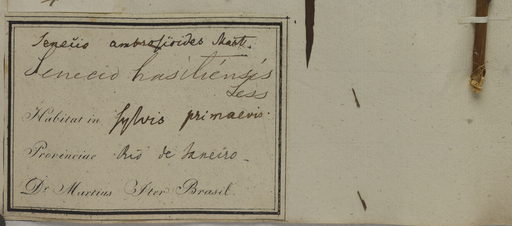 Senecio ambrosioides Mart.
Senecio brasiliensis
Less
Habitat in sylvis primaevis.
Provinciae Rio de Janeiro.
Dr. Martius Iter Brasil.